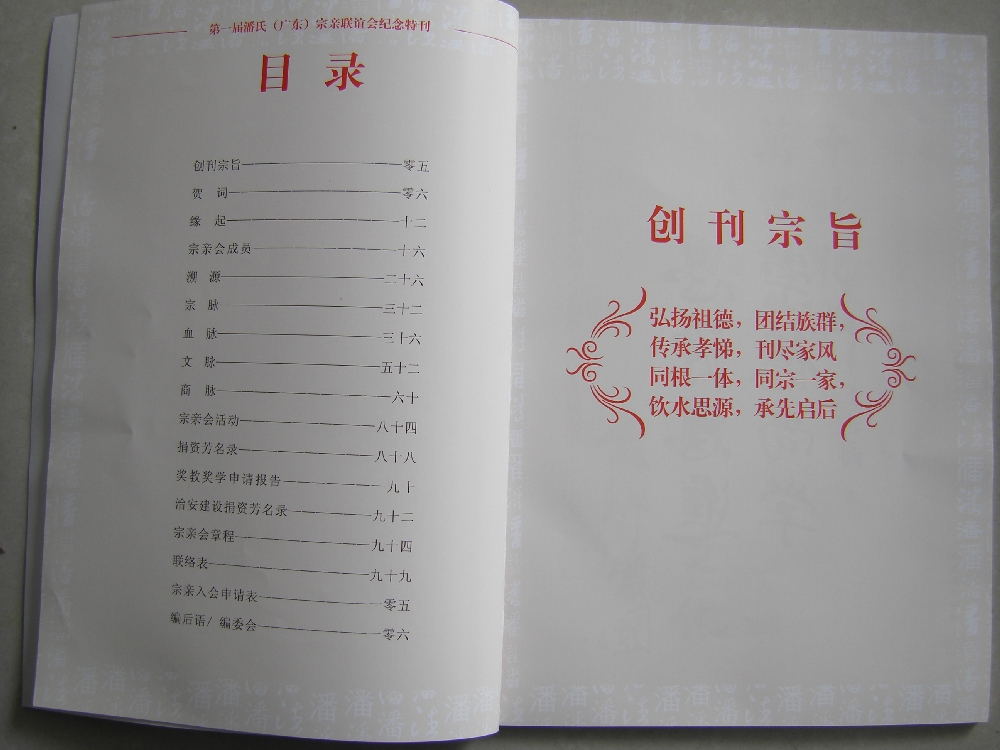 第一届潘氏（广东）宗亲联谊会纪念特刊
目 录
创刊宗旨 零五
贺 词 零六
缘 起 十二
宗亲会成员 十六
溯 源 二十六
宗 脉 三十二
血 脉 三十六
文 脉 五十二
商 脉 六十
宗亲会活动 八十四
捐资芳名录 八十八
奖教奖学申请报告 九十
治安建设捐资芳名录 九十二
宗亲会章程 九十四
联络表 九十九
宗亲入会申请表 一零五
编后语/ 编委会 一零六
创刊宗旨
弘扬祖德，团结族群，
传承孝悌，刊尽家风
同根一体，同宗一家，
饮水思源，承先启后